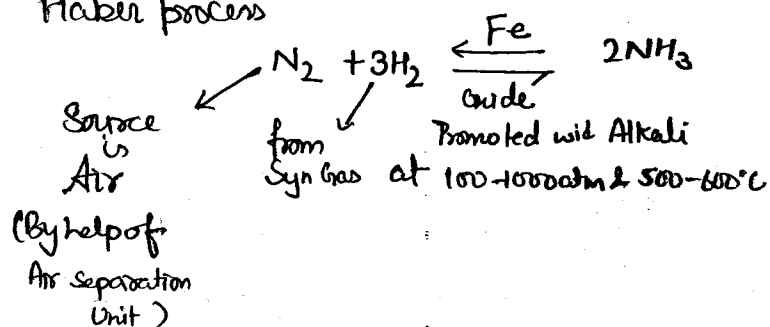 Haber process
N₂ + 3H₂ ⇌ 2NH₃
Fe
Oxide
Source is Air
(By help of Air separation Unit)
from Syn Gas
Promoted wid Alkali
at 100-1000atm & 500-600°C